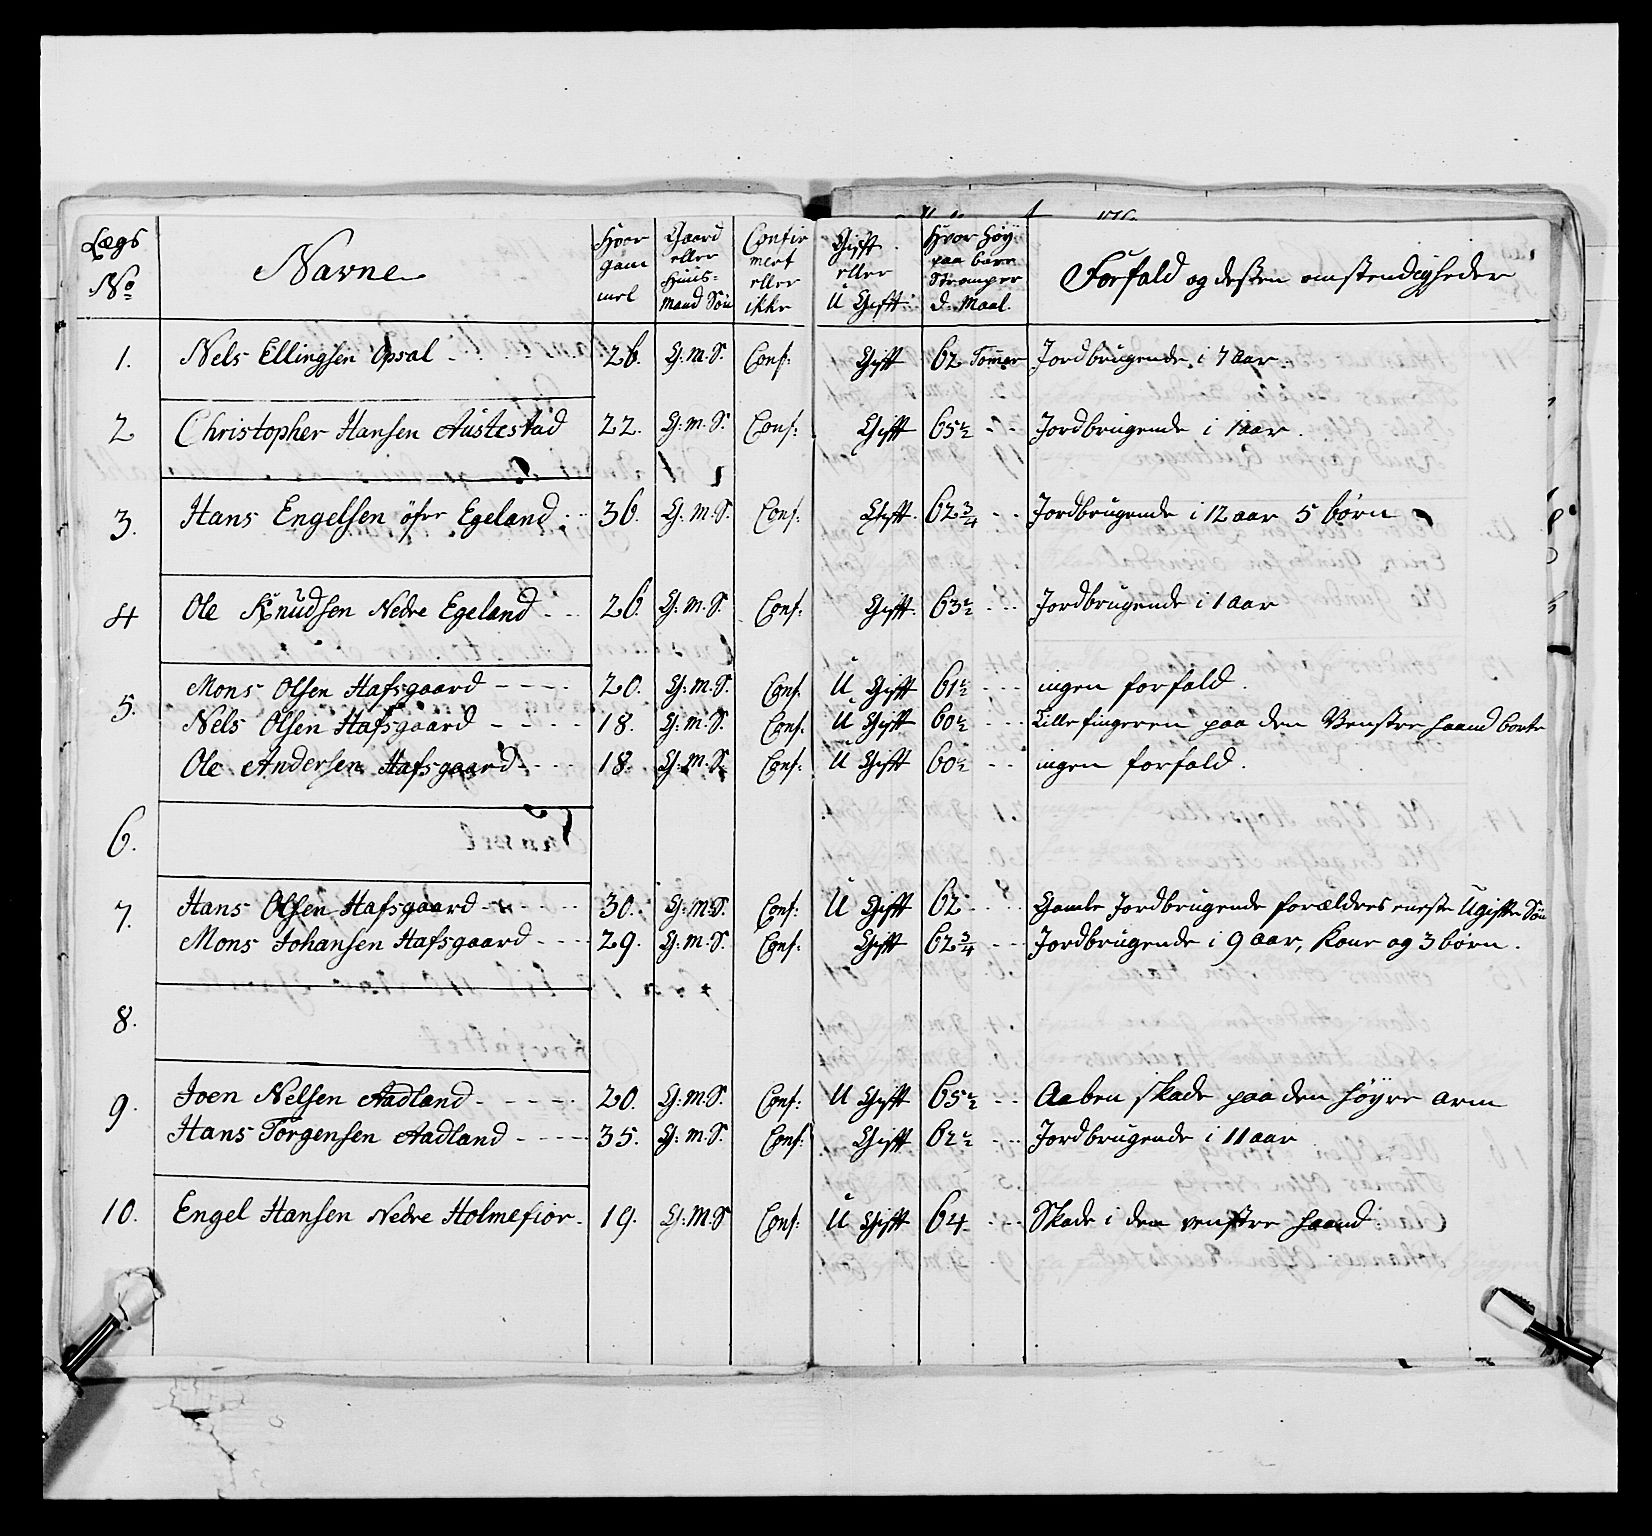 Lægs No Navne Hvor gam mel Gaard eller Huus= mand Søn Confir mert eller ikke Gifft eller U Gift Hvor Høy paa bare Strømper d. Maal. Forfald og dessen omstendigheder
1. Nels Ellingsen Opsal - 26. G: M: S. Conf: Gift 62 Tommer Jordbrugende i 7 aar.
2 Christopher Hansen Austestad 22. G: M: S. Conf: Gifft 65½ - - Jordbrugende i 1 aar.
3. Hans Engelsen öfre Egeland - - 36. G: M: S. Conf: Gift. 62¾ - - Jordbrugende i 12 aar 5 børn
4 Ole Knudsen Nedre Egeland - - 26. G: M: S. Conf: Gift. 63½ - - - Jordbrugende i 1 aar
5. Mons Olsen Hafsgaard - - - - 20. G: M: S. Conf: U Gifft 61½ - - - ingen forfald.
Nels Olsen Hafsgaard - - - - 18. G: M: S. Conf: U Gift 60½ - - - Lille fingeren paa den Venstre haand borte
Ole Andersen Hafsgaard - - - 18. G: M: S. Conf: U Gift 60½ - - ingen forfald.
6.
7. Hans Olsen Hafsgaard - - - - - 30. G: M: S. Conf: U Gifft 62 - - - Gamle Jordbrugende forældres eneste Ugifte Søn
Mons Johansen Hafsgaard - - - 29. G: M: S. Conf: Gifft 62¾ - - Jordbrugende i 9 aar, Kone og 3 børn.
8.
9. Joen Nelsen Aadland - - - - - 20. G: M: S. Conf: U Gifft 65½ - - Aaben skade paa den høyre arm
Hans Torgensen Aadland - - - - 35. G: M: S. Conf: Gifft 62½ - - - Jordbrugende i 11 aar
10. Engel Hansen Nedre Holmefior - 19. G: M: S Conf: U Gifft 64 - - - Skade i den venstre haand